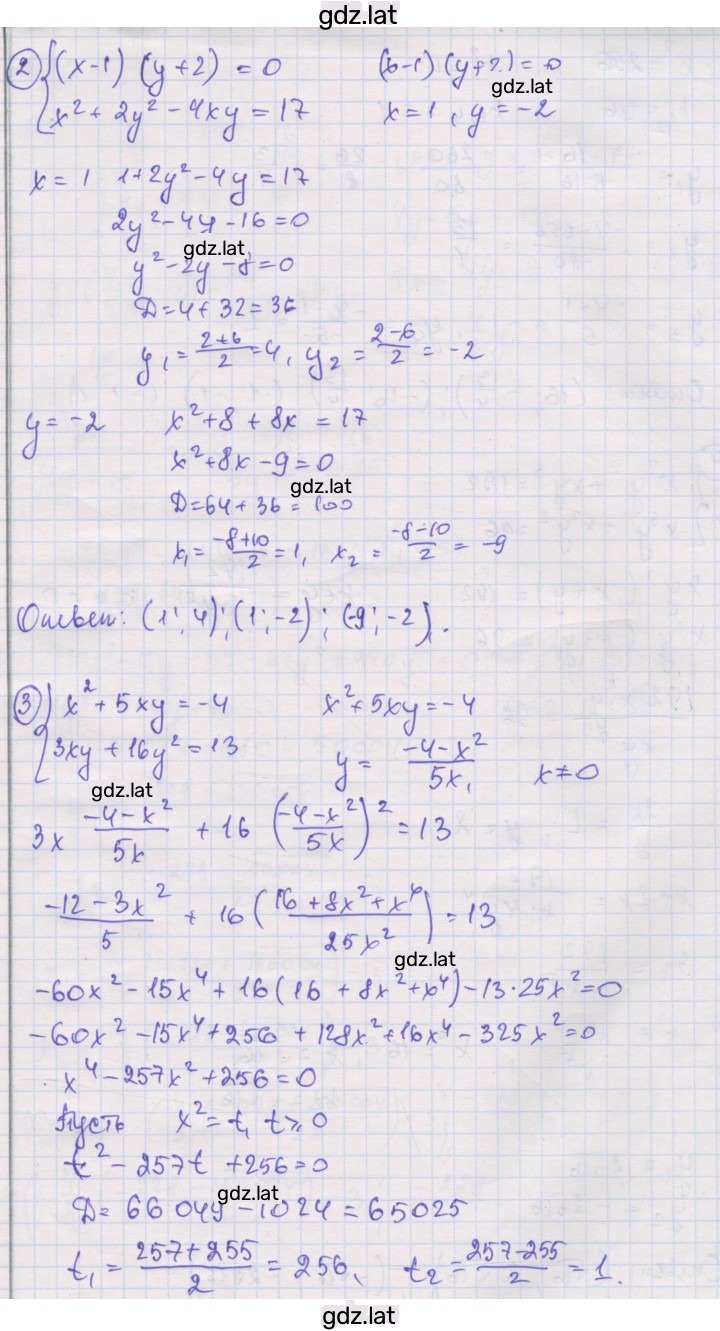 gdz.lat
② { (x-1) (y+2) = 0     (x-1) (y+2) = 0
gdz.lat
x² + 2y² - 4xy = 17     x = 1, y = -2
x = 1   1+2y²-4y = 17
2y²-4y-16=0
gdz.lat
y²-2y-8=0
D=4+32=36
y₁ = (2+6)/2 = 4, y₂ = (2-6)/2 = -2
y = -2   x²+8+8x = 17
x²+8x-9=0
gdz.lat
D=64+36=100
x₁ = (-8+10)/2 = 1, x₂ = (-8-10)/2 = -9
Ответ: (1; 4); (1; -2); (-9; -2).
③ { x² + 5xy = -4     x²+5xy=-4
3xy + 16y² = 13     y = (-4-x²)/5x, x≠0
gdz.lat
3x (-4-x²)/5x + 16 ((-4-x²)/5x)² = 13
(-12-3x²)/5 + 16 ((16+8x²+x⁴)/25x²) = 13
gdz.lat
-60x²-15x⁴+16(16+8x²+x⁴)-13·25x²=0
-60x²-15x⁴+256+128x²+16x⁴-325x²=0
x⁴-257x²+256=0
Пусть x²=t, t≥0
t²-257t+256=0
gdz.lat
D= 66049-1024=65025
t₁ = (257+255)/2 = 256, t₂ = (257-255)/2 = 1.
gdz.lat